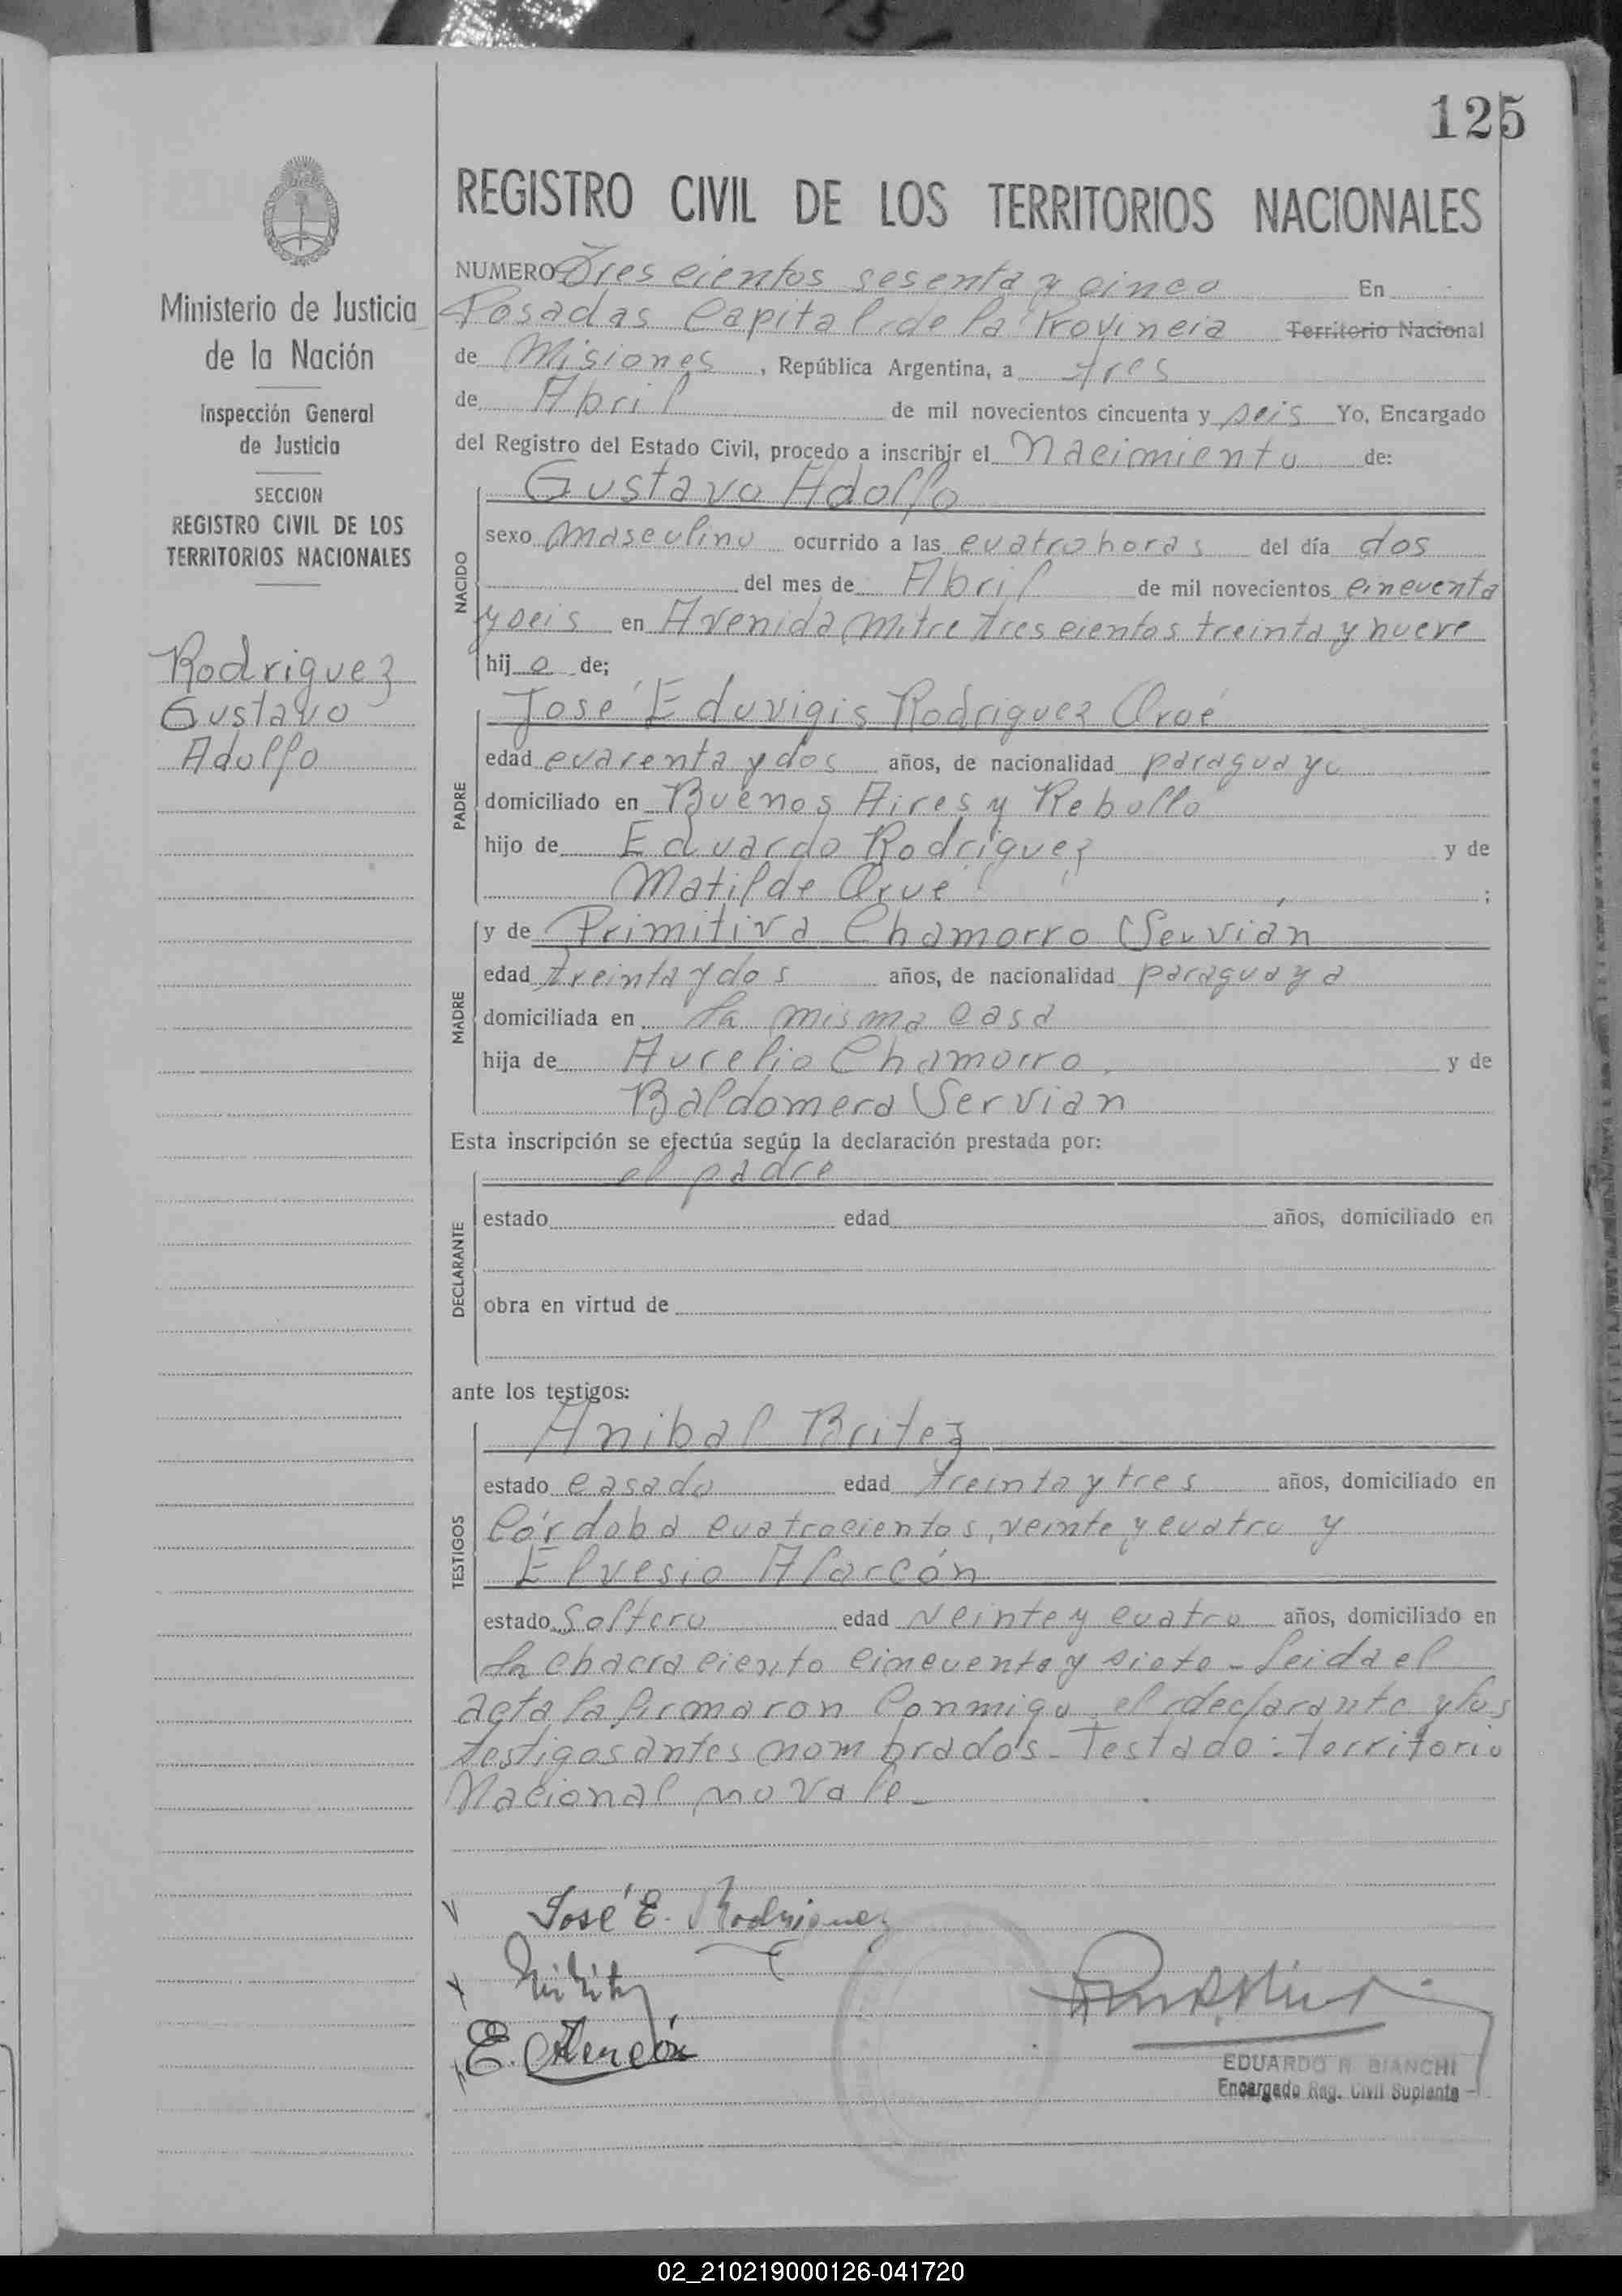 125
REGISTRO CIVIL DE LOS TERRITORIOS NACIONALES
Ministerio de Justicia
de la Nación
Inspección General
de Justicia
SECCION
REGISTRO CIVIL DE LOS
TERRITORIOS NACIONALES
Rodriguez
Gustavo
Adolfo
NUMERO Tres cientos sesenta y cinco En
Posadas Capital de la Provincia Territorio Nacional
de Misiones, República Argentina, a tres
de Abril de mil novecientos cincuenta y seis Yo, Encargado
del Registro del Estado Civil, procedo a inscribir el Nacimiento de:
NACIDO
Gustavo Adolfo
sexo masculino ocurrido a las cuatro horas del día dos
del mes de Abril de mil novecientos cincuenta
y seis en Avenida Mitre tres cientos treinta y nueve
hijo de;
PADRE
José Eduvigis Rodriguez Orué
edad cuarenta y dos años, de nacionalidad paraguayo
domiciliado en Buenos Aires y Rebollo
hijo de Eduardo Rodriguez y de
Matilde Orué ;
MADRE
y de Primitiva Chamorro Servián
edad treinta y dos años, de nacionalidad paraguaya
domiciliada en la misma casa
hija de Aurelio Chamorro y de
Baldomera Servian
Esta inscripción se efectúa según la declaración prestada por:
DECLARANTE
el padre
estado edad años, domiciliado en
obra en virtud de
ante los testigos:
TESTIGOS
Anibal Britez
estado casado edad treinta y tres años, domiciliado en
Córdoba cuatrocientos, veinte y cuatro y
Elvesio Alarcón
estado Soltero edad veinte y cuatro años, domiciliado en
la chacra ciento cincuenta y siete - Leida el
acta la firmaron Conmigo, el declarante y los
testigos antes nombrados - Testado: territorio
Nacional no vale -
José E. Rodriguez
E. Alarcón
EDUARDO R. BIANCHI
Encargado Reg. Civil Suplente
02_210219000126-041720